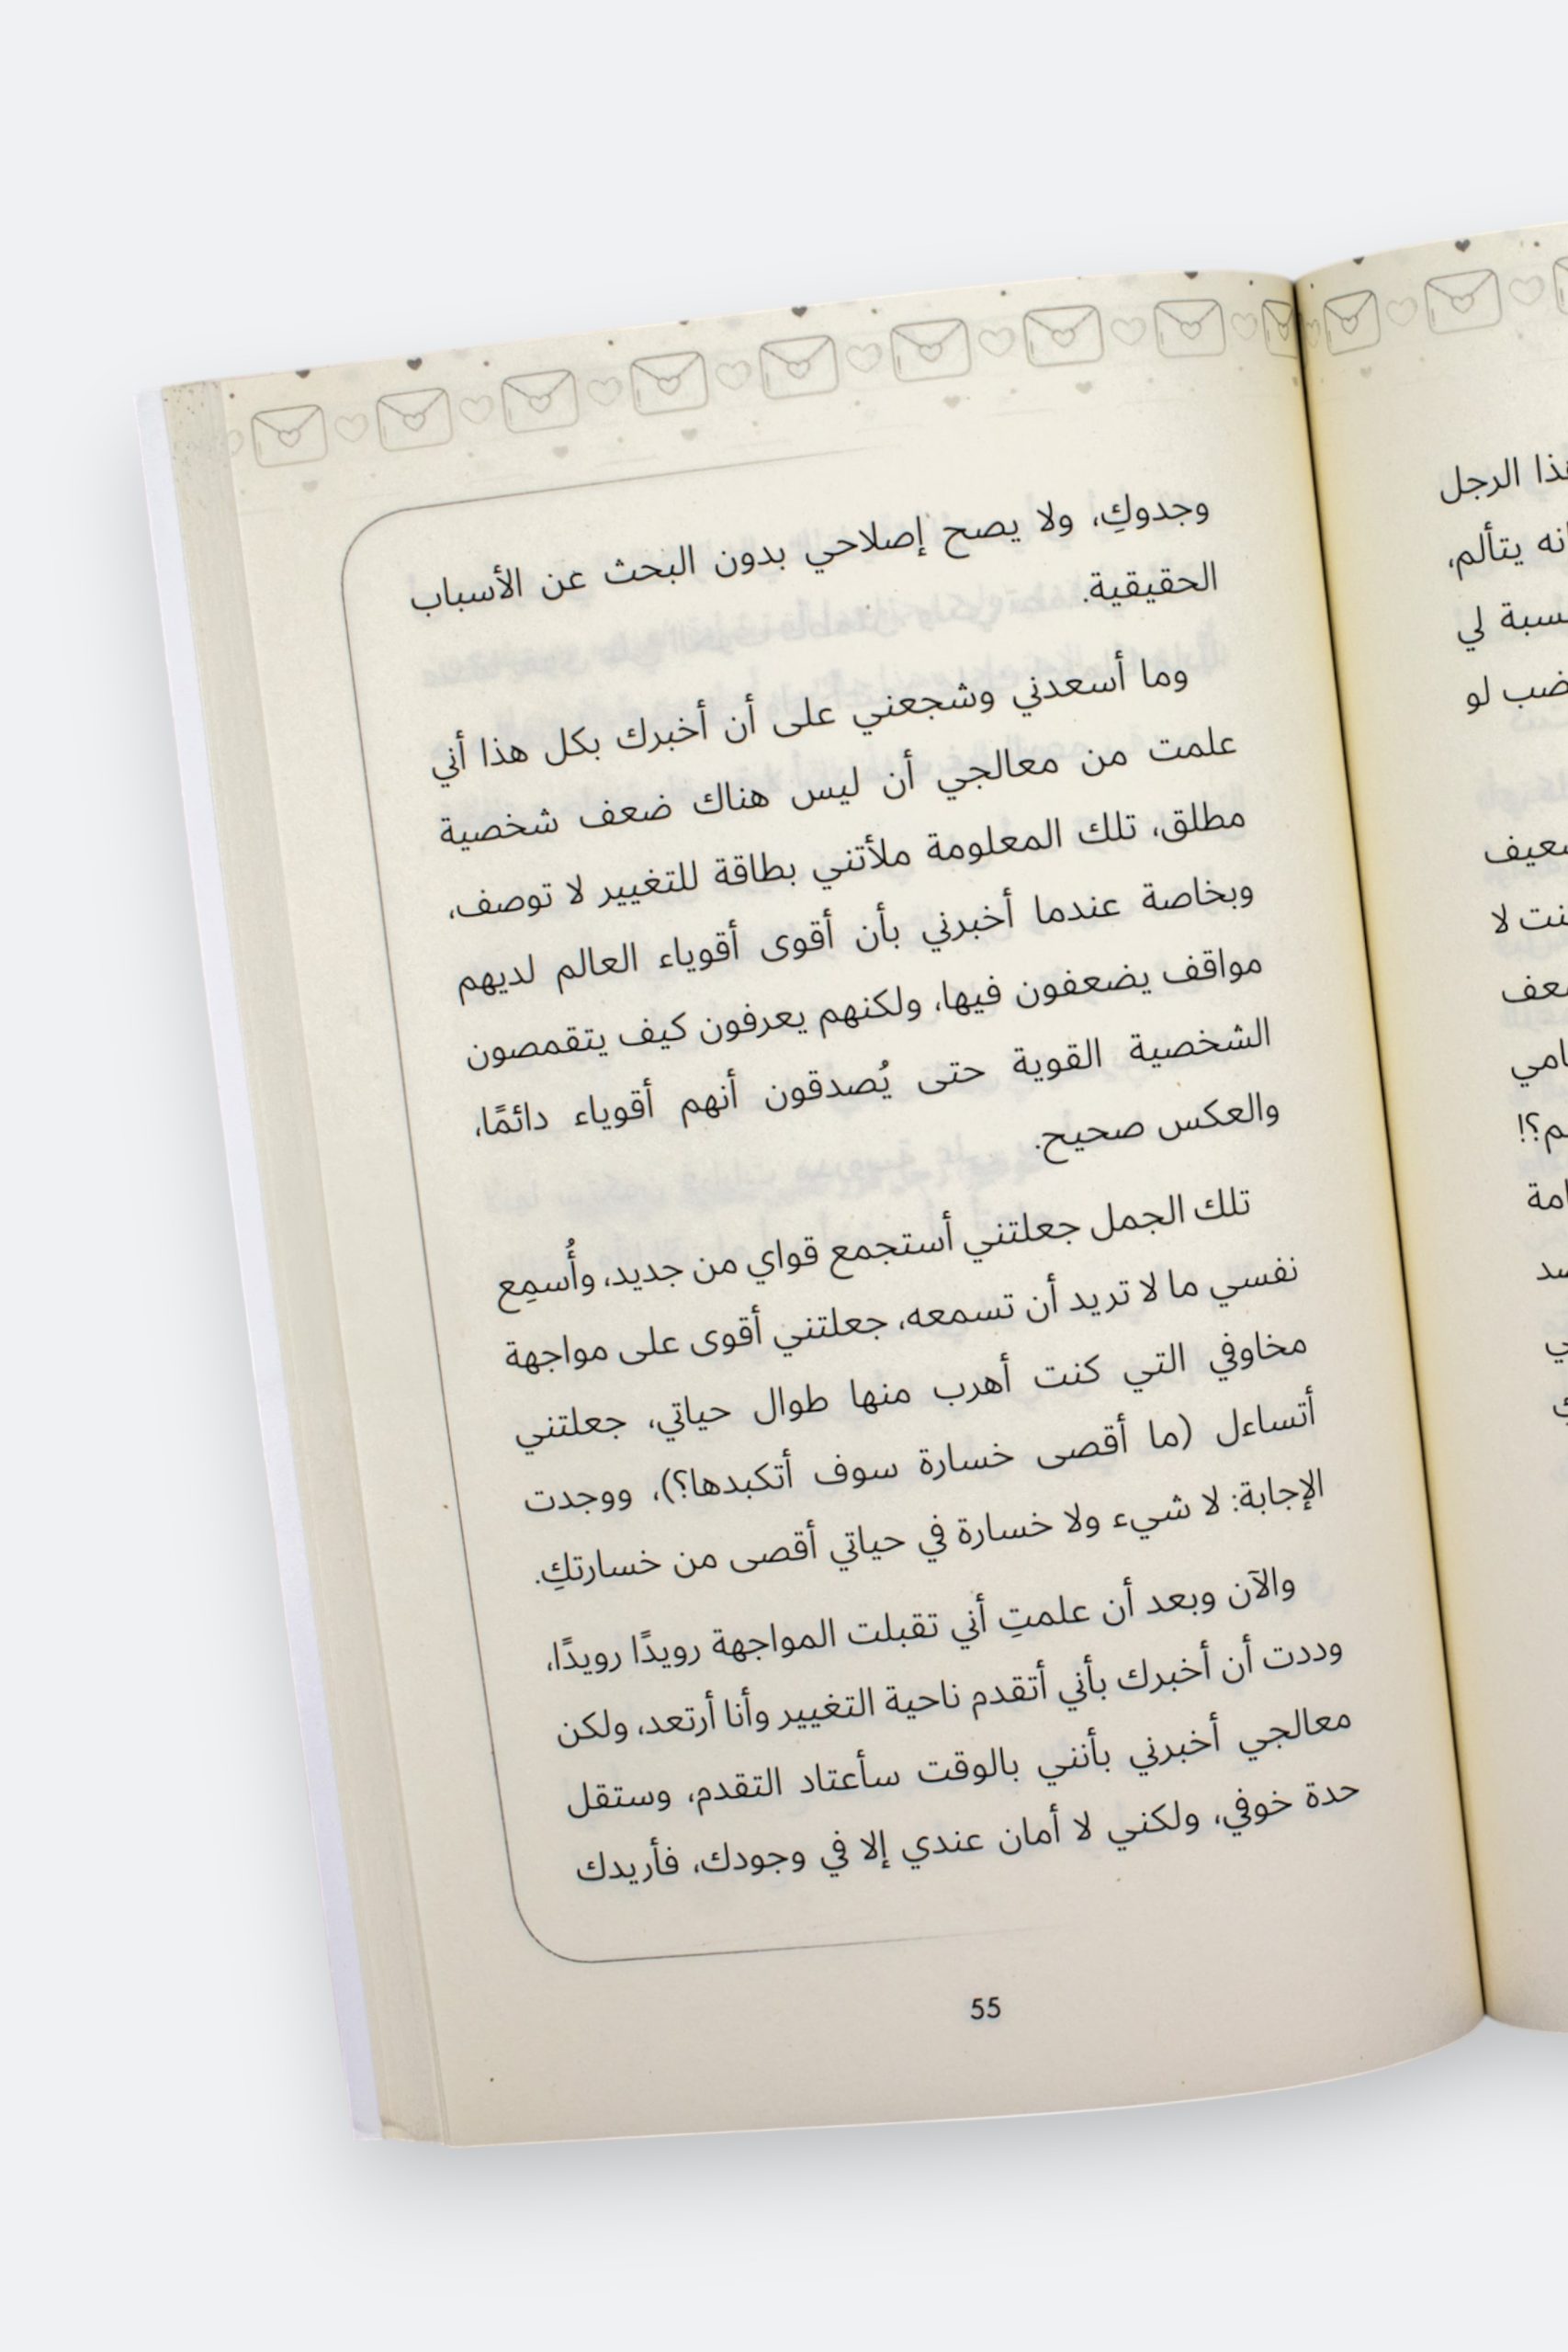 وجدوكِ، ولا يصح إصلاحي بدون البحث عن الأسباب
الحقيقية.
وما أسعدني وشجعني على أن أخبرك بكل هذا أني
علمت من معالجي أن ليس هناك ضعف شخصية
مطلق، تلك المعلومة ملأتني بطاقة للتغيير لا توصف،
وبخاصة عندما أخبرني بأن أقوى أقوياء العالم لديهم
مواقف يضعفون فيها، ولكنهم يعرفون كيف يتقمصون
الشخصية القوية حتى يُصدقون أنهم أقوياء دائمًا،
والعكس صحيح.
تلك الجمل جعلتني أستجمع قواي من جديد، وأُسمِع
نفسي ما لا تريد أن تسمعه، جعلتني أقوى على مواجهة
مخاوفي التي كنت أهرب منها طوال حياتي، جعلتني
أتساءل (ما أقصى خسارة سوف أتكبدها؟)، ووجدت
الإجابة: لا شيء ولا خسارة في حياتي أقصى من خسارتكِ.
والآن وبعد أن علمتِ أني تقبلت المواجهة رويدًا رويدًا،
وددت أن أخبرك بأني أتقدم ناحية التغيير وأنا أرتعد، ولكن
معالجي أخبرني بأنني بالوقت سأعتاد التقدم، وستقل
حدة خوفي، ولكني لا أمان عندي إلا في وجودك، فأريدك
55
الرجل
يتألم،
لي
لو
لا